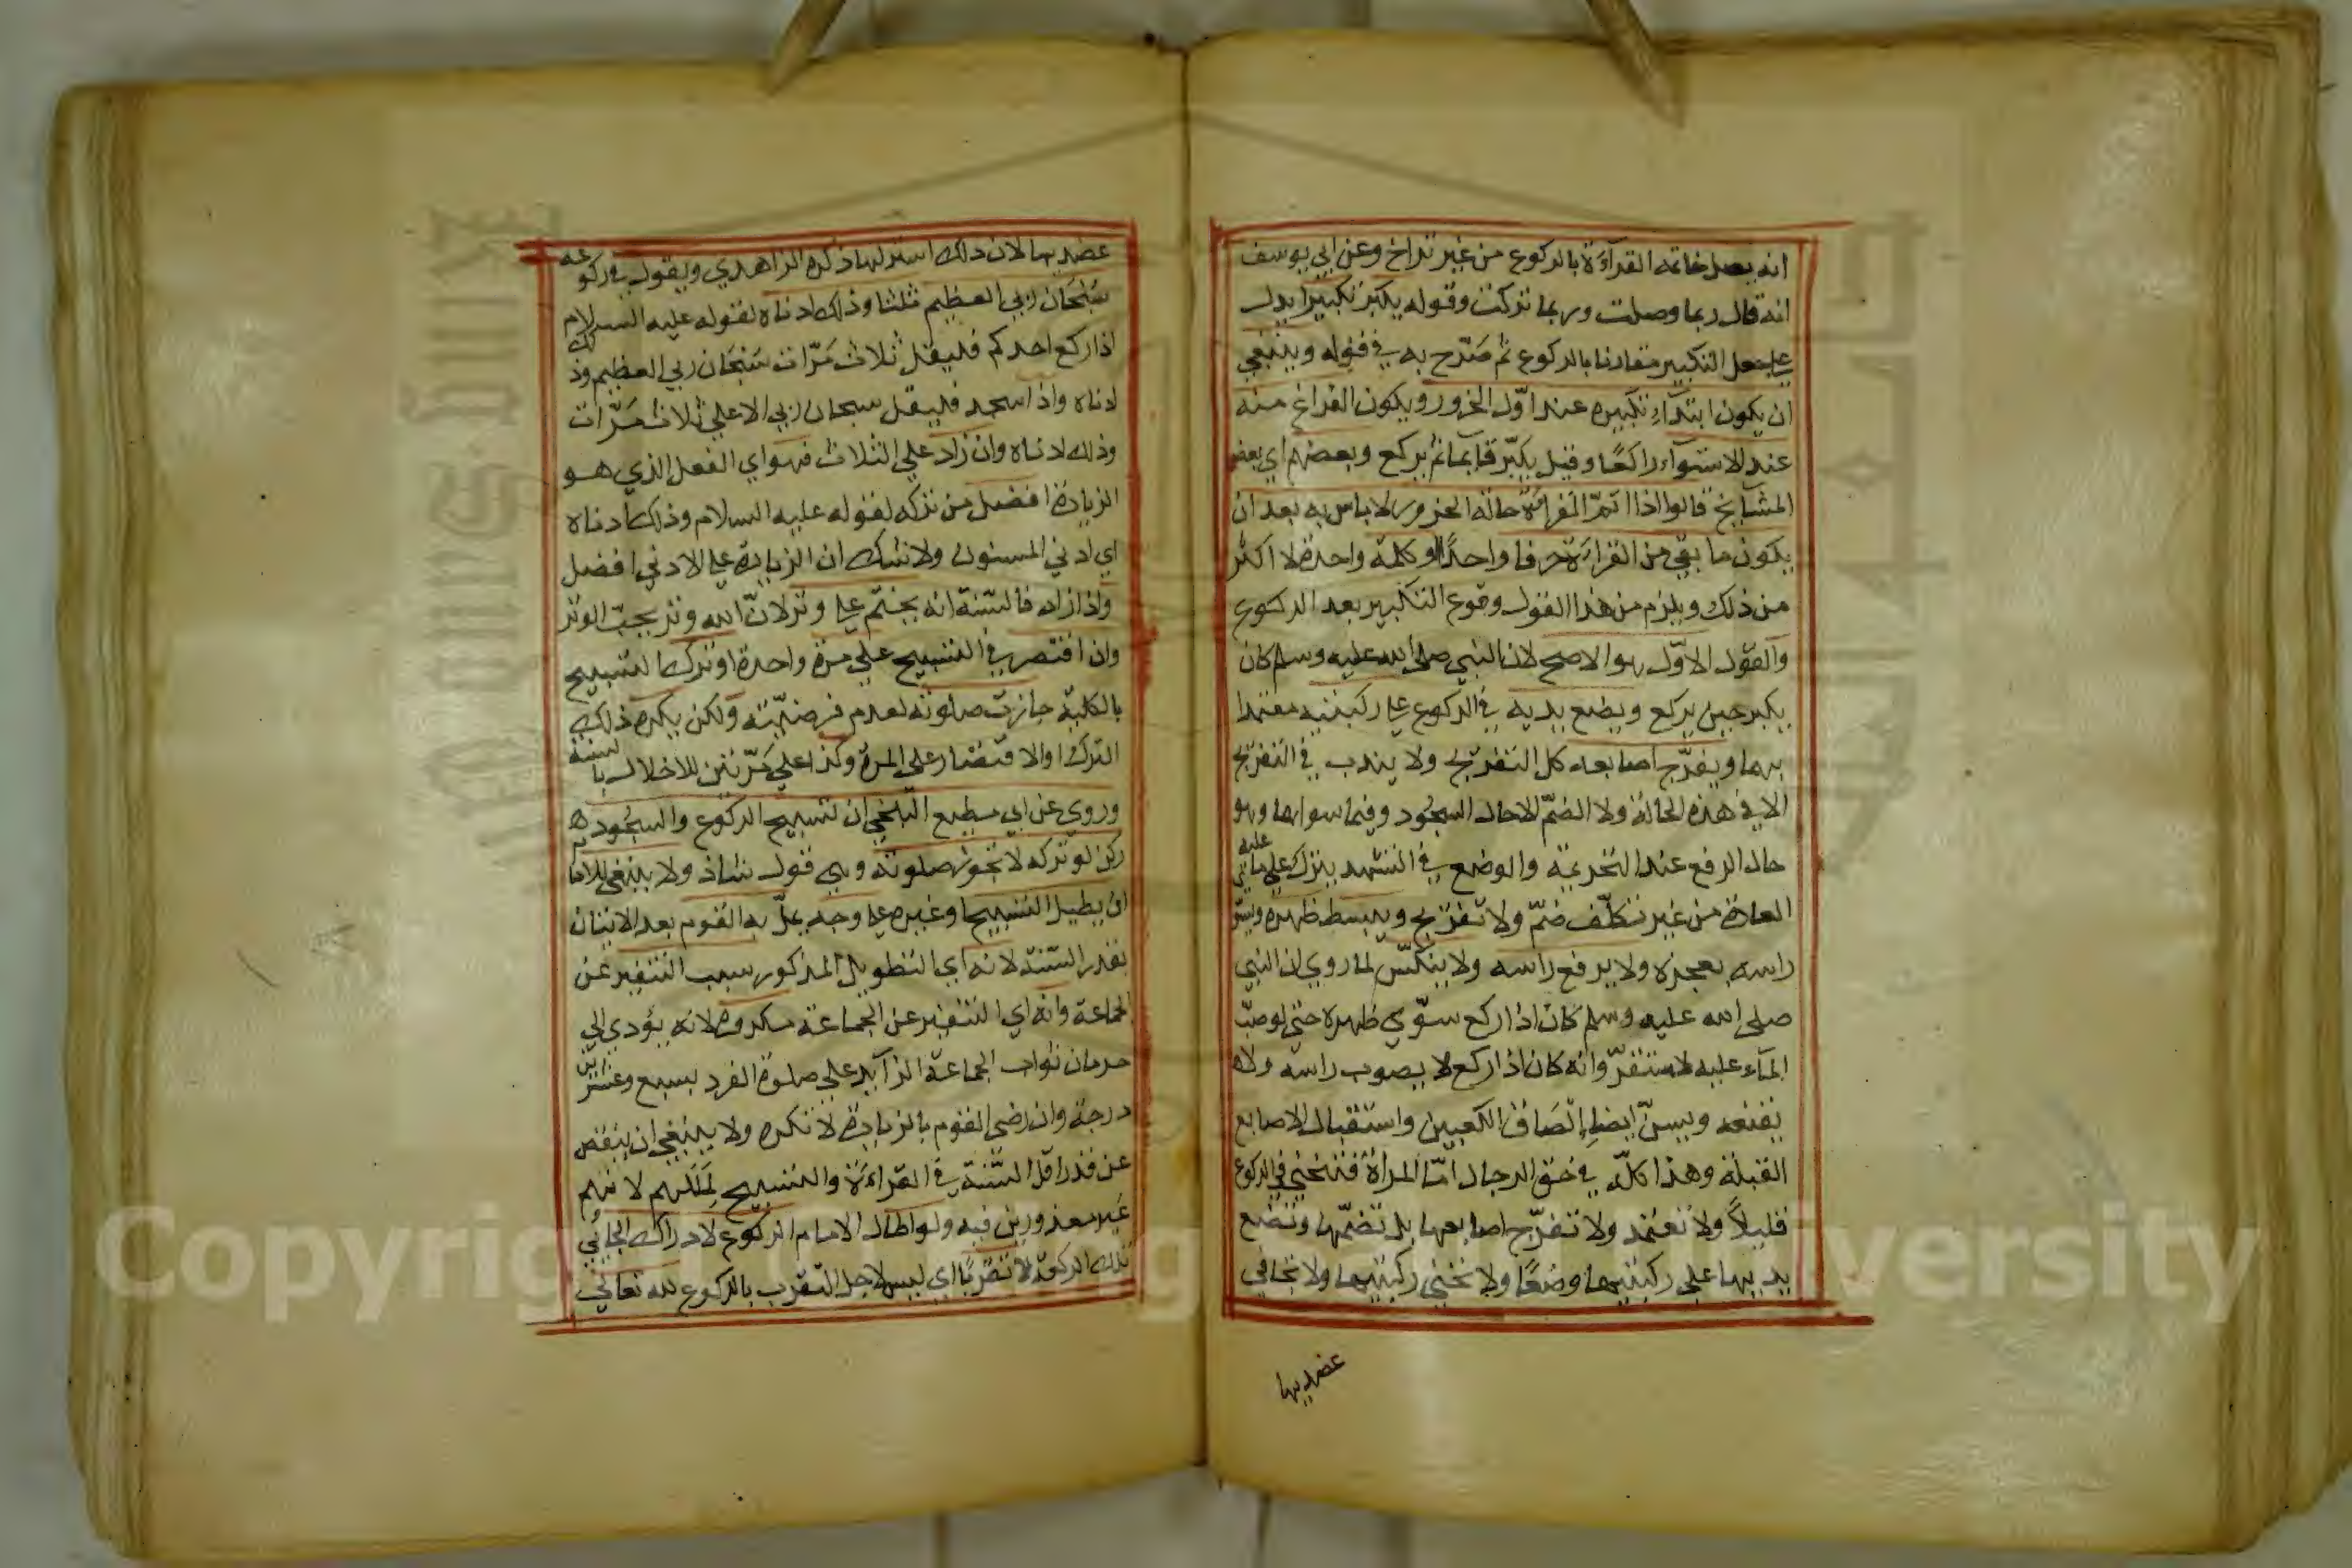 انه يصل خاتمة القرآءة بالركوع من غير تراخ وعن ابي يوسف
انه قال ربما وصلت وربما تركت وقوله يكبر تكبيرا يدل
علي جعل التكبير مقارنا بالركوع ثم صَرّح به في قوله وينبغي
ان يكون ابتدآء تكبيره عند اوّل الخرور ويكون الفراغ منه
عند الاستوآء راكعًا وقيل يكبّر قآيما ثم يركع وبعضهم اي بعض
المشآيخ قالوا اذا اتمّ القرآءة حالة الخرور لا باس به بعد ان
يكون ما بقي من القراءة حرفا واحدًا او كلمة واحدة لا اكثر
من ذلك ويلزم من هذا القول وقوع التكبير بعد الركوع
والقول الاوّل هو الاصح لان النبي صلى الله عليه وسلم كان
يكبر حين يركع ويضع يديه في الركوع علي ركبتيه معتمدا
بهما ويفرّج اصابعه كل التفريج ولا يندب في التفريج
الا في هذه الحالة ولا الضمّ الا حال السجود وفيما سواهما وهو
حال الرفع عند التحريمة والوضع في التشهد يترك علي ما عليه
العادة من غير تكلّف ضمّ ولا تفريج ويبسط ظهره ويسوّي
راسه بعجزه ولا يرفع راسه ولا ينكّس لما روي ان النبي
صلى الله عليه وسلم كان اذا ركع سوّي ظهره حتي لو صبّ
المآء عليه لاستقرّ وانه كان اذا ركع لا يصوب راسه ولا
يقنعه ويسنّ ايضا الصاق الكعبين واستقبال الاصابع
القبلة وهذا كلّه في حق الرجال امّا المراة فتنحني في الركوع
قليلاً ولا تعتمد ولا تفرّج اصابعها بل تضمّها وتضع
يديها على ركبتيها وضعًا ولا تحني ركبتيها ولا تجافي
عضديها
عضديها لان ذلك استر لها ذكره الزاهدي ويقول في ركوعه
سُبْحَان ربي العظيم ثلثا وذلك ادناه لقوله عليه السلام
اذا ركع احدكم فليقل ثلاث مَرّات سُبْحَان ربي العظيم وذلك
ادناه واذا سجد فليقل سبحان ربي الاعلي ثلاث مَرّات
وذلك ادناه وان زاد علي الثلاث فهو اي الفعل الذي هو
الزيادة افضل من تركه لقوله عليه السلام وذلك ادناه
اي ادني المسنون ولا شك ان الزيادة علي الادني افضل
واذا زاد فالسّنة انه يختم علي وتر لانّ الله وتر يحبّ الوتر
وان اقتصر في التسبيح علي مرة واحدة او ترك التسبيح
بالكلية جازت صلوته لعدم فرضيّته ولكن يكره ذلك
الترك او الاقتصار على المرة وكذا علي مَرّتين للاخلال بالسنة
وروي عن ابي مطيع البلخي ان تسبيح الركوع والسجود
ركن لو تركه لا تجوز صلوته وهي قول شاذ ولا ينبغي للامام
ان يطيل التسبيح او غيره علي وجه يملّ به القوم بعد الاتيان
بقدر السّنة لانه اي التطويل المذكور سبب التنفير عن
الجماعة وانه اي التنفير عن الجماعة مكروه لانه يؤدي الي
حرمان ثواب الجماعة الزآيد علي صلوة الفرد بسبع وعشرين
درجة وان رضي القوم بالزيادة لا تكره ولا ينبغي ان ينقص
عن قدر اقل السّنة في القراءة والتسبيح لِمَلَلهم لانهم
غير معذورين فيه ولو اطال الامام الركوع لادراك الجائي
تلك الركعة لا تقرّبًا اي ليس لاجل التقرب بالركوع لله تعالي